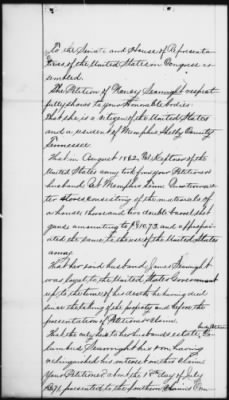 To the Senate and House of Representa
tives of the United States in Congress as
sembled.
The Petition of Nancy Seawright respect
fully shows to your Honorable bodies:
that she is a citizen of the United States
and a resident of Memphis Shelby County
Tennessee
That in August 1862, Col of the
United States army took from your Petitioners
husband at Memphis Tenn
ter stores consisting of the materials of
a house, thousand two double barrel shot
guns amounting to $ and appropri
ated the same to the use of the United States
army
That her said husband James Seawright
was loyal to the United States Government
up to the time of his death he having died
since the taking of sd property and before the
presentation of Petitioners claim.
That the only heir to her husbands estate,
Seawright his son having
relinquished his interest in other claim
Your Petitioner, about the 18th day of July
1871 presented to the Southern Claims Com